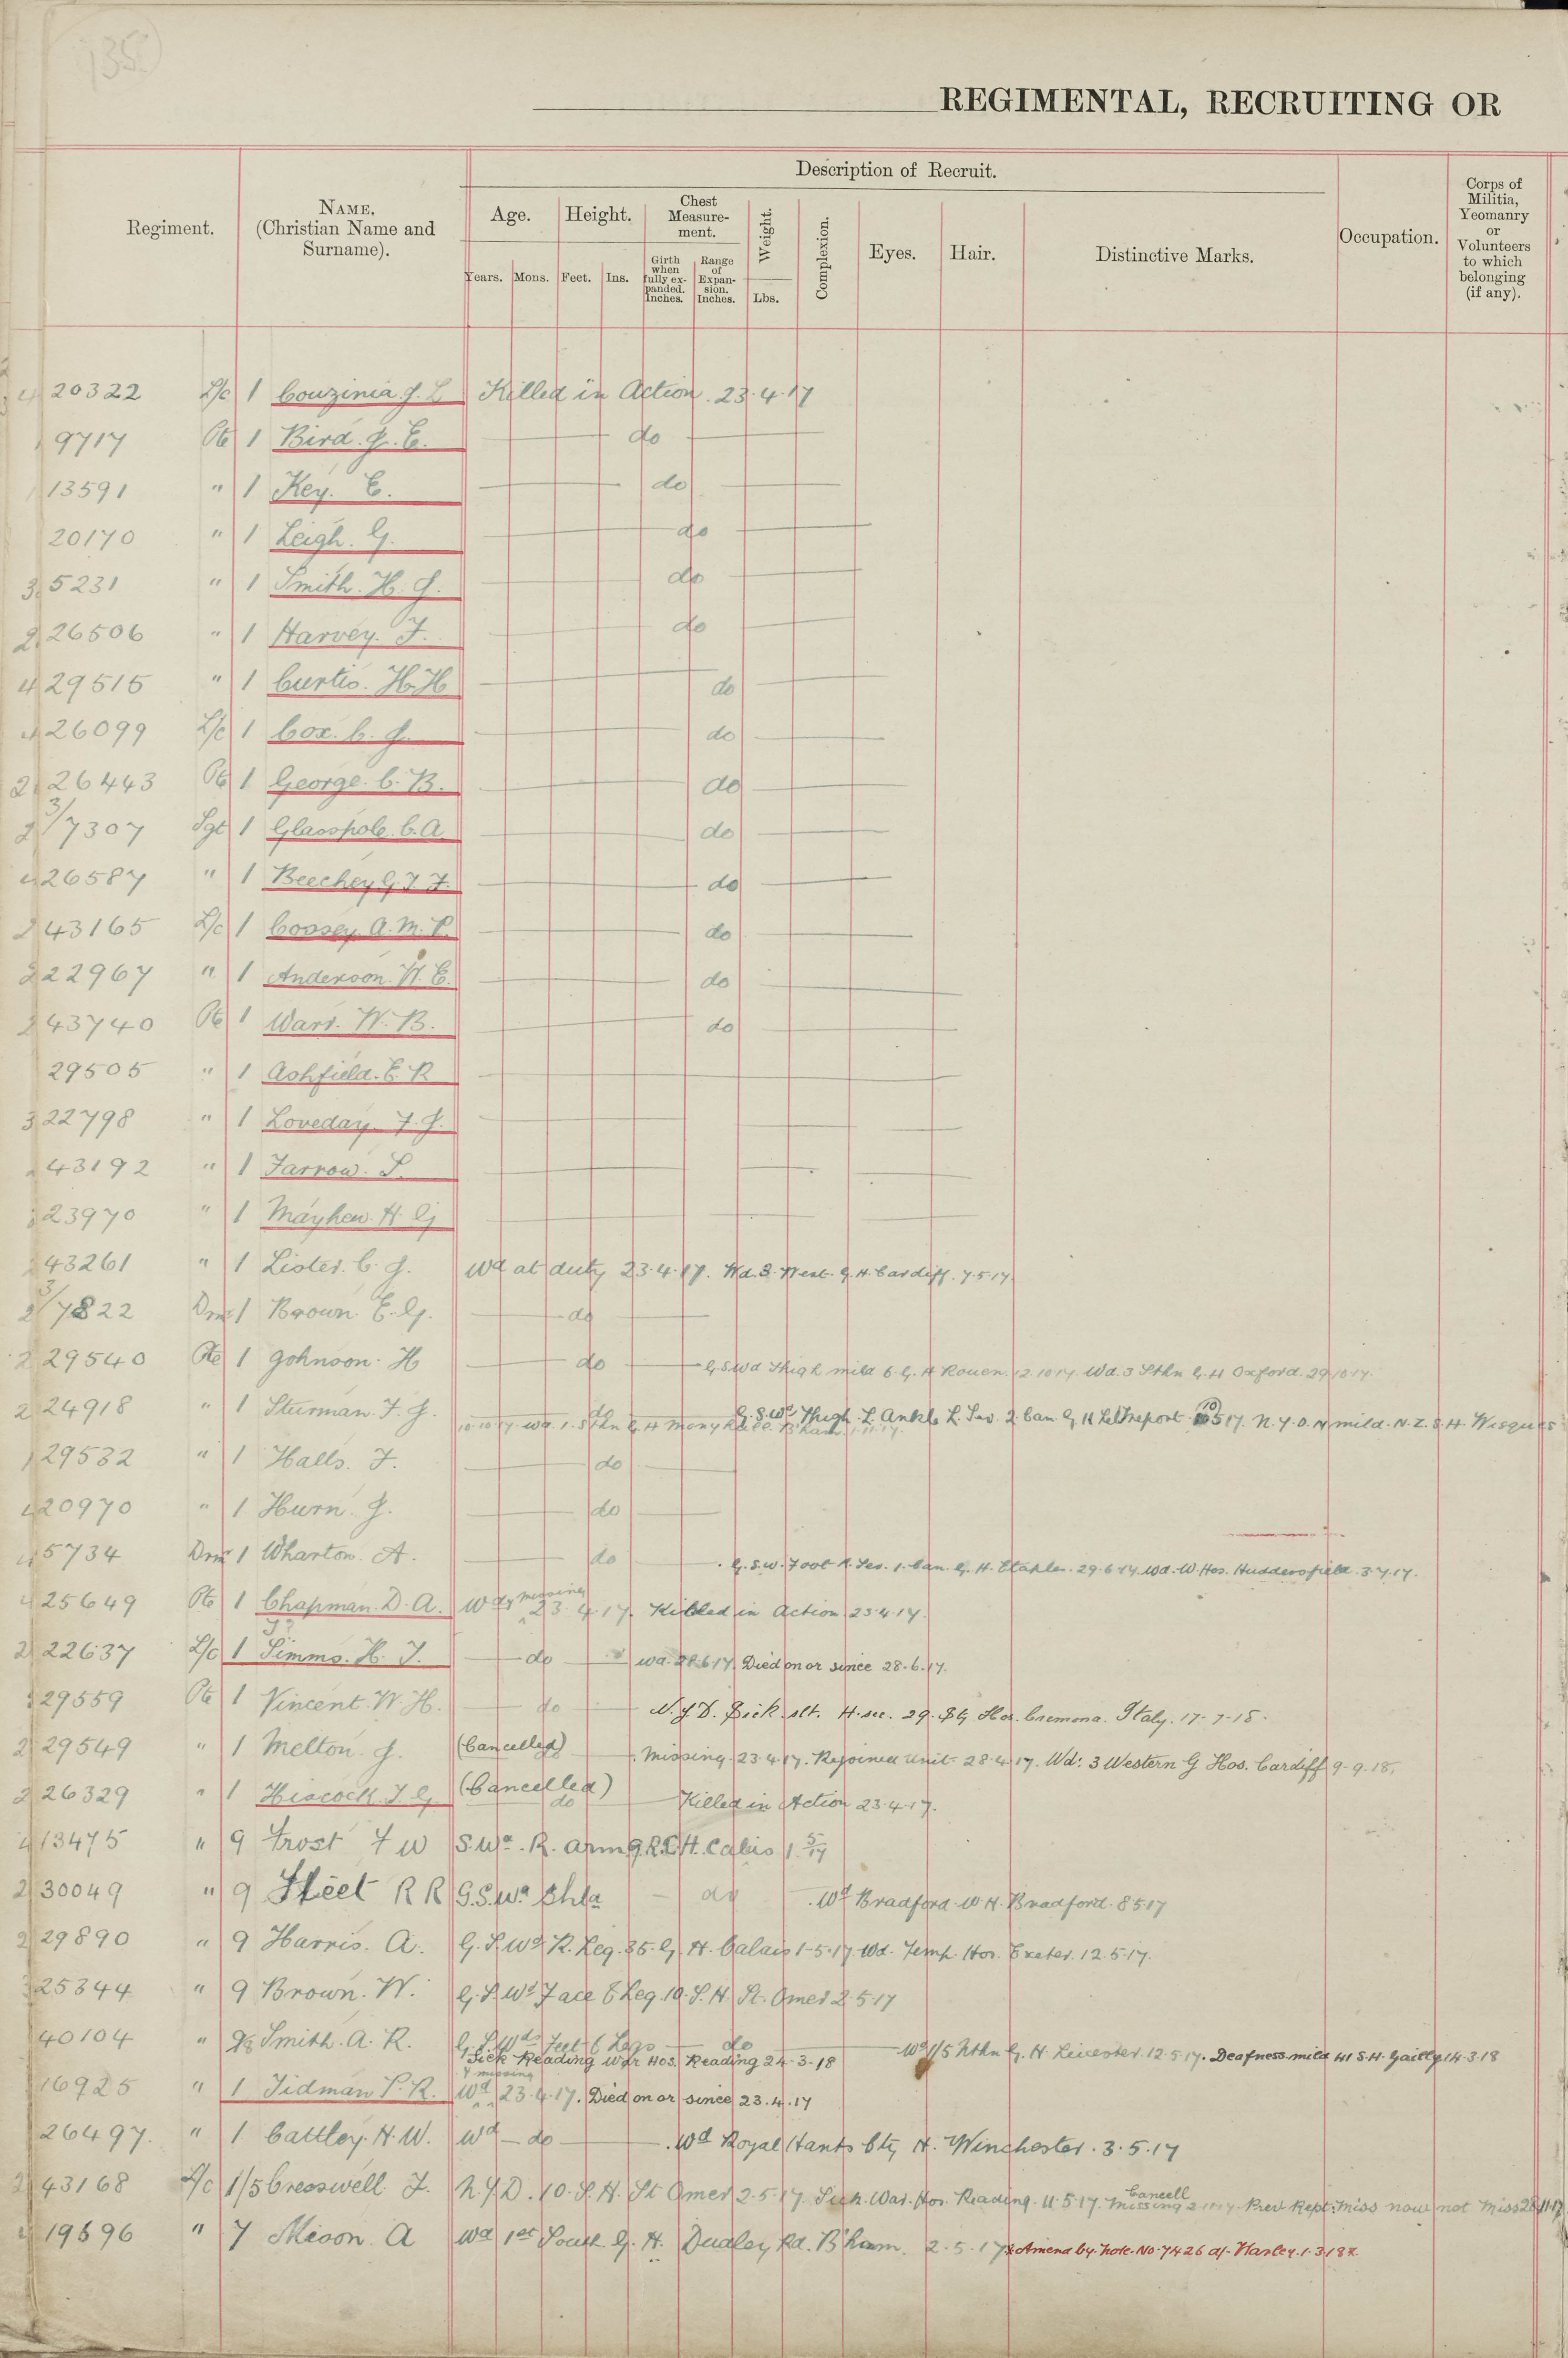 135
REGIMENTAL, RECRUITING OR
Description of Recruit.
Regiment.
NAME.
(Christian Name and
Surname).
Age.
Height.
Chest
Measure-
ment.
Weight.
Complexion.
Eyes.
Hair.
Distinctive Marks.
Occupation.
Corps of
Militia,
Yeomanry
or
Volunteers
to which
belonging
(if any).
Years.
Mons.
Feet.
Ins.
Girth
when
fully ex-
panded.
Inches.
Range
of
Expan-
sion.
Inches.
Lbs.
4 20322 L/c 1 Couzinia. J. L Killed in Action. 23.4.17
9717 Pte 1 Bird. J. E. do
13591 " 1 Key. E. do
20170 " 1 Leigh. G. do
3 5231 " 1 Smith. H. J. do
2 26506 " 1 Harvey. F. do
4 29515 " 1 Curtis. H. H do
4 26099 L/c 1 Cox. C. J. do
2 26443 Pte 1 George. C. B. do
2 3/7307 Sgt 1 Glasspole. C. A. do
4 26587 " 1 Beechey G. F. F. do
2 43165 L/c 1 Coosey. A. M. P. do
2 22967 " 1 Anderson. W. E. do
2 43740 Pte 1 Ward. W. B. do
29505 " 1 Ashfield. E. R
3 22798 " 1 Loveday. F. J.
43192 " 1 Farrow. S.
3 23970 " 1 Mayhew. H. G
2 43261 " 1 Lister. C. J. Wd at duty 23.4.17. Wd. 3. West. G. H. Cardiff. 7.5.17
2 3/7822 Drmr 1 Brown. E. G. do
2 29540 Pte 1 Johnson. H do G.S.Wd Thigh mild 6. G. H Rouen. 12.10.17. Wd. 3 Sthn G. H Oxford. 29.10.17.
2 24918 " 1 Sturman. F. J. do G.S.Wd Thigh. L. Ankle L. Sev. 2. Can. G. H LeTreport 10.5.17. N.Y.D.N mild. N.Z.S.H Wisques
10.10.17. Wd. 1. Sthn G. H Monyhull. B'ham 1.11.17.
1 29532 " 1 Halls. F. do
4 20970 " 1 Hurn. J. do
4 5734 Drmr 1 Wharton. A. do G.S.W. Foot R. Sev. 1. Can. G. H. Etaples. 29.6.17. Wd. W. Hos. Huddersfield. 3.7.17.
4 25649 Pte 1 Chapman. D. A. Wd & missing 23.4.17. Killed in Action 23.4.17.
2 22637 L/c 1 Simms. H. J. do Wd. 28.6.17. Died on or since 28.6.17.
3 29559 Pte 1 Vincent. W. H. do N.Y.D. Sick slt. H. sec. 29. Stg Hos. Cremona. Italy. 17-7-18.
2 29549 " 1 Melton. J. (Cancelled) Missing. 23.4.17. Rejoined Unit. 28.4.17. Wd: 3 Western G Hos. Cardiff 9-9-18.
2 26329 " 1 Hiscock. F. G. (Cancelled) do Killed in Action 23.4.17.
4 13475 " 9 Frost F W S.Wd. R. arm 9. R.C.H. Calais 1.5/17
2 30049 " 9 Steel R R G.S.Wd do Wd Bradford. W H. Bradford. 8.5.17
2 29890 " 9 Harris. A. G.S.Wd R. Leg. 35. G. H. Calais 1-5-17. Wd. Temp. Hos. Exeter. 12.5.17.
3 25344 " 9 Brown. W. G.S.Wd Face & Leg. 10. S. H. St. Omer 2.5.17
40104 " 9 Smith. A. R. G.S.Wds Feet & Legs do Wd 1/5 Nthn G. H. Leicester. 12.5.17. Deafness mild 41 S.H. Gailly 14.3.18
Sick Reading War Hos. Reading 24-3-18
16925 " 1 Tidman P. R. Wd & missing 23.4.17. Died on or since 23.4.17
26497. " 1 Cattley. H. W. Wd do Wd Royal Hants Cty H. Winchester. 3.5.17
2 43168 L/c 1/5 Cresswell. F. N.Y.D. 10. S. H. St Omer 2.5.17. Sick. War. Hos. Reading. 11.5.17. Missing Cancell Prev Rept: Miss now not Miss
4 19696 " 7 Mison A Wd 1st South. G. H. Dudley Rd. B'ham. 2.5.17 Amend by Note. No. 7426 Harley. 1.3.18